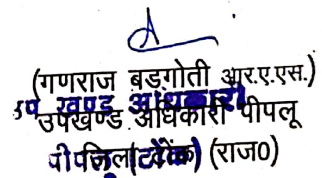 (गणराज बड़गोती आर.ए.एस.)
उप खण्ड अधिकारी
उपखण्ड अधिकारी पीपलू
जिला (टोंक) (राज०)